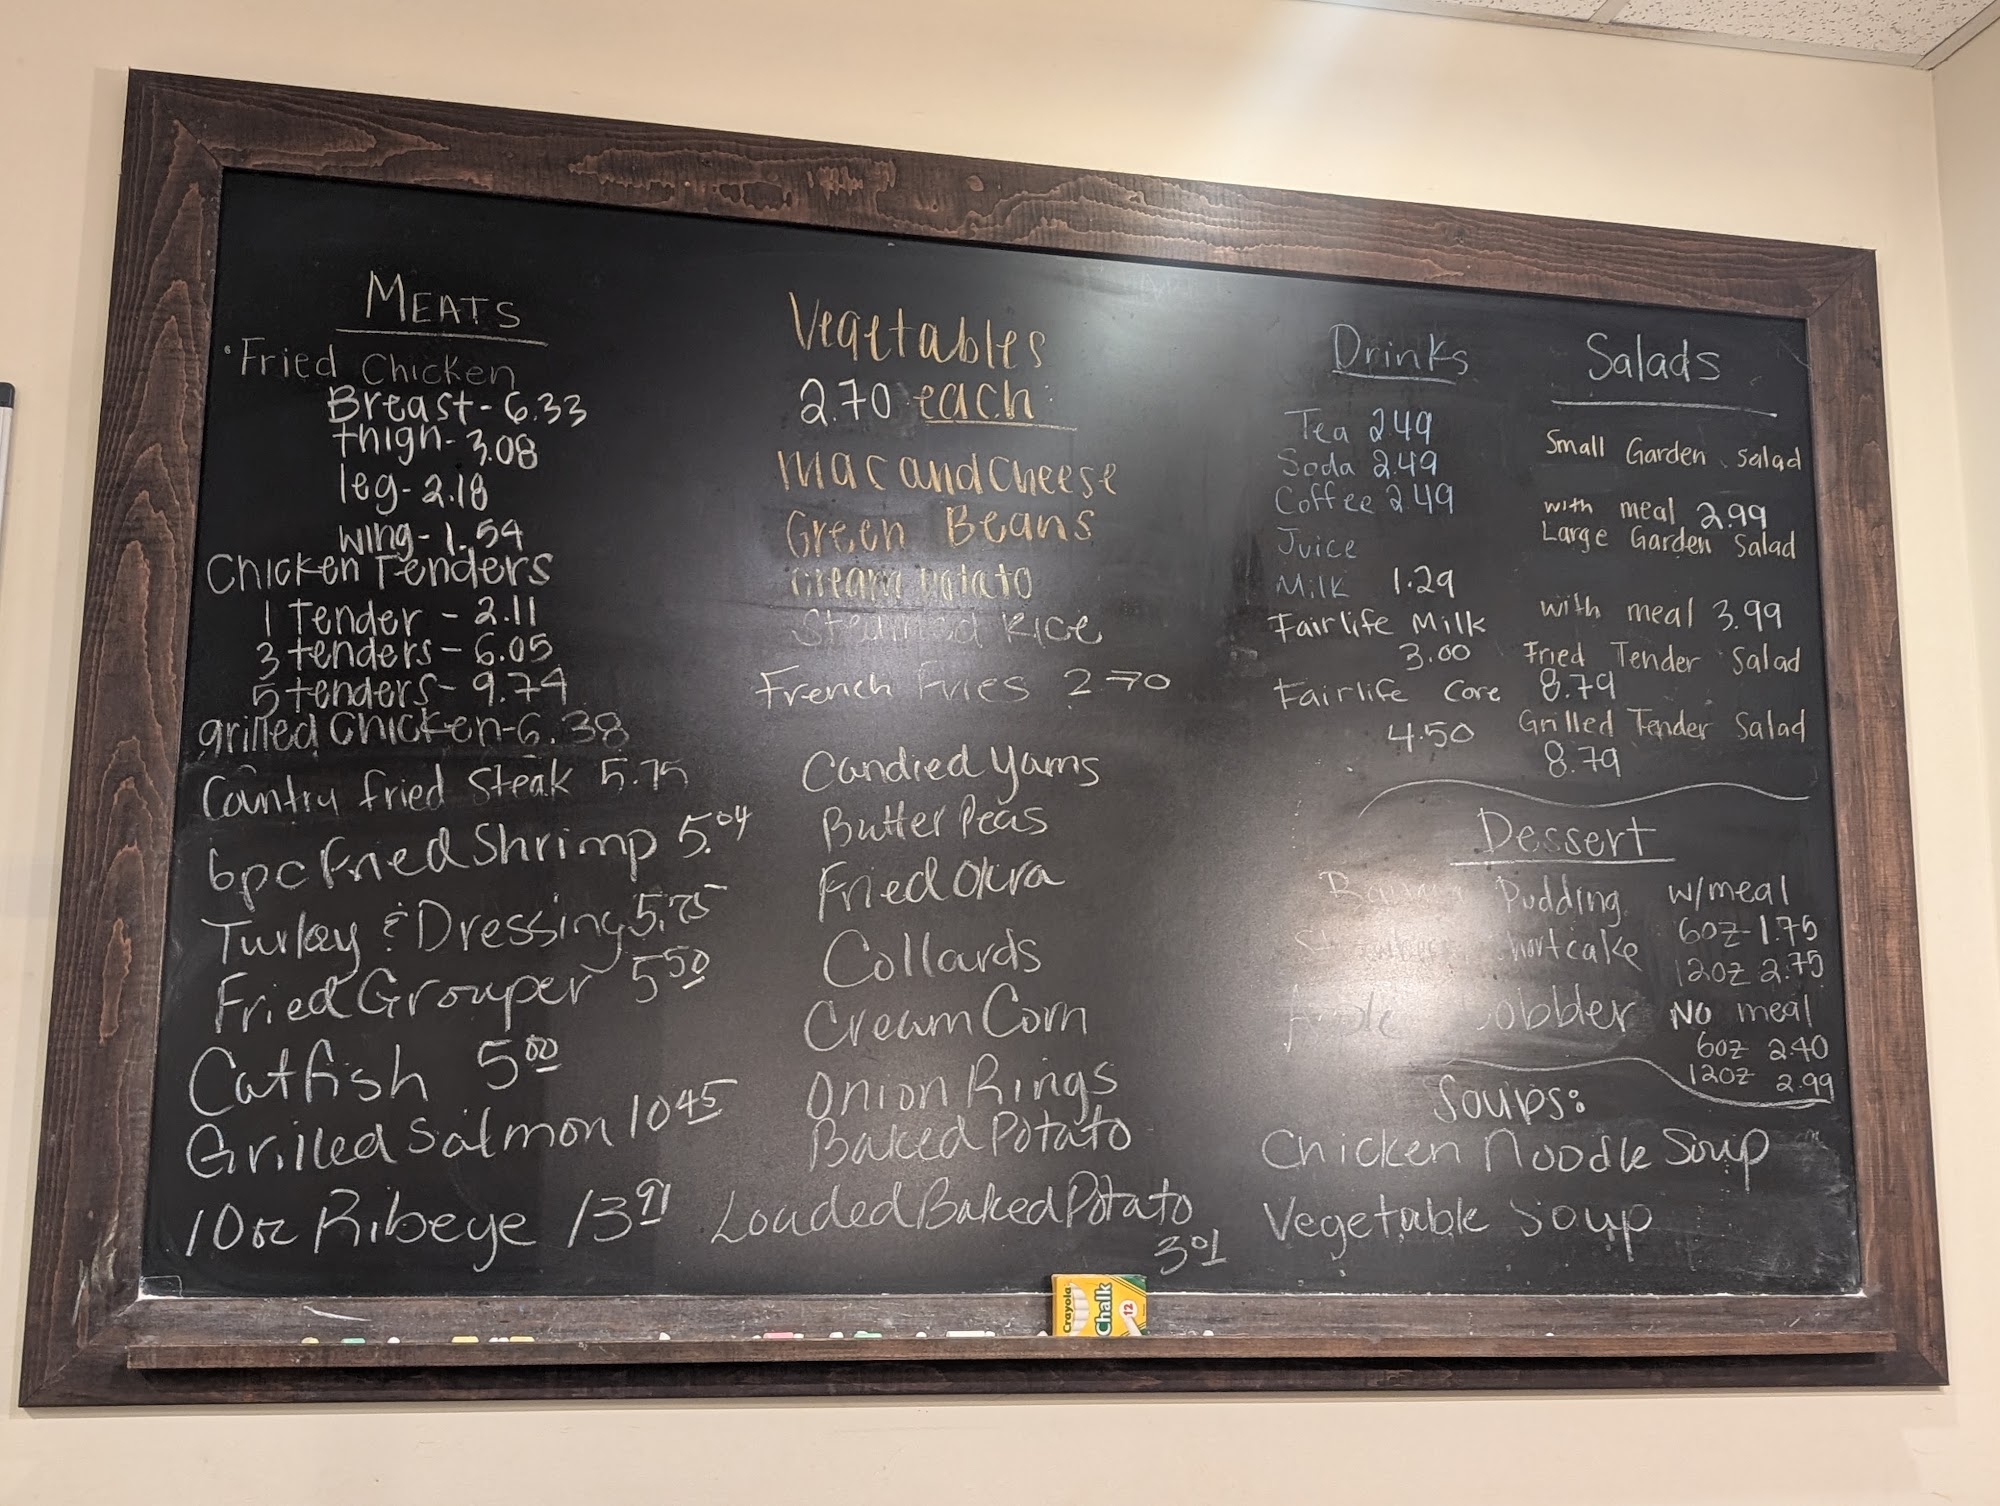 MEATS
Fried Chicken
Breast - 6.33
thigh - 3.08
leg - 2.18
wing - 1.54
Chicken Tenders
1 Tender - 2.11
3 tenders - 6.05
5 tenders - 9.74
grilled chicken - 6.38
Country fried Steak 5.75
6pc Fried Shrimp 5.04
Turkey & Dressing 5.75
Fried Grouper 5 50
Catfish 5 00
Grilled Salmon 10 45
10oz Ribeye 13 91
Vegetables
2.70 each:
Mac and Cheese
Green Beans
Cream Potato
Steamed Rice
French Fries 2.70
Candied Yams
Butter Peas
Fried Okra
Collards
Cream Corn
Onion Rings
Baked Potato
Loaded Baked Potato
3 01
Drinks
Tea 2.49
Soda 2.49
Coffee 2.49
Juice
Milk 1.29
Fairlife Milk
3.00
Fairlife Core
4.50
Salads
Small Garden Salad
with meal 2.99
Large Garden Salad
with meal 3.99
Fried Tender Salad
8.79
Grilled Tender Salad
8.79
Dessert
Pudding
shortcake
cobbler
w/meal
6oz - 1.75
12oz 2.75
No meal
6oz 2.40
12oz 2.99
Soups:
Chicken Noodle Soup
Vegetable Soup
Crayola
Chalk
12